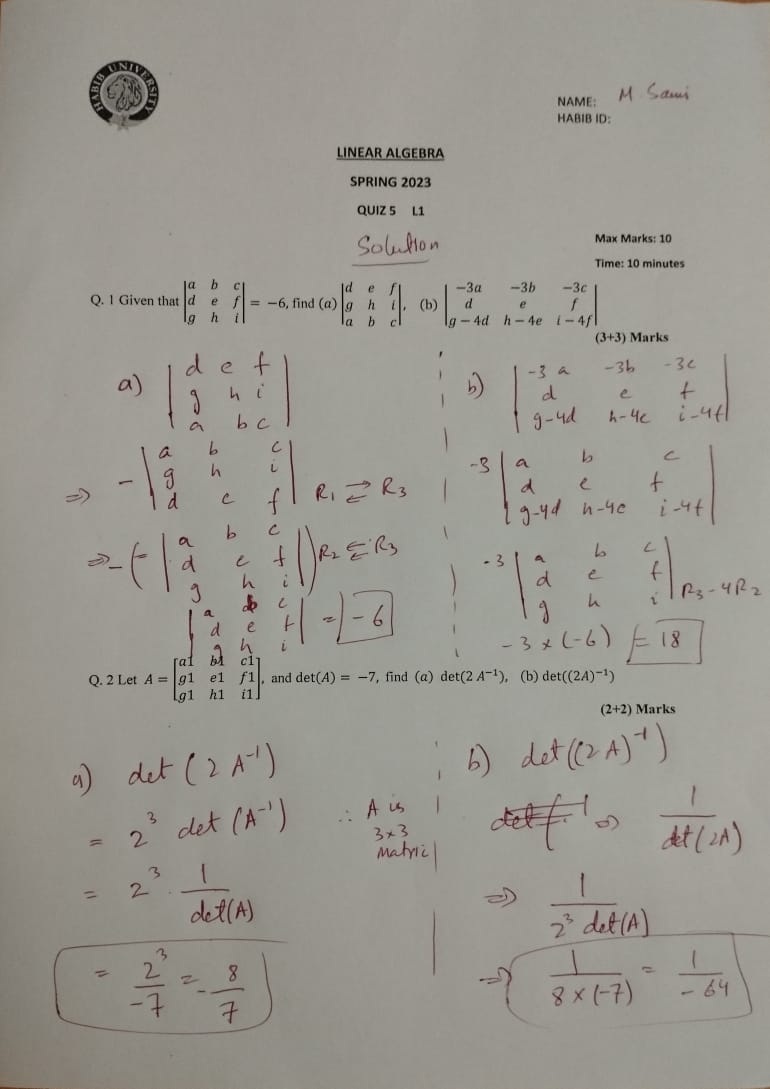 HABIB UNIVERSITY
NAME: M. Sami
HABIB ID:
LINEAR ALGEBRA
SPRING 2023
QUIZ 5 L1
Solution
Max Marks: 10
Time: 10 minutes
Q. 1 Given that |a b c; d e f; g h i| = −6, find (a) |d e f; g h i; a b c|, (b) |−3a −3b −3c; d e f; g − 4d h − 4e i − 4f|
(3+3) Marks
a) |d e f; g h i; a b c|
⇒ −|a b c; g h i; d e f| R₁ ⇄ R₃
⇒ −(−|a b c; d e f; g h i|) R₂ ⇆ R₃
|a b c; d e f; g h i| = −6
b) |-3a -3b -3c; d e f; g-4d h-4e i-4f|
-3 |a b c; d e f; g-4d h-4e i-4f|
-3 |a b c; d e f; g h i| R₃-4R₂
-3 × (-6) = 18
Q. 2 Let A = [a1 b1 c1; g1 e1 f1; g1 h1 i1], and det(A) = −7, find (a) det(2 A⁻¹), (b) det((2A)⁻¹)
(2+2) Marks
a) det (2 A⁻¹)
= 2³ det (A⁻¹)
∴ A is
3×3
Matric
= 2³ · 1/det(A)
= 2³/-7 = -8/7
b) det((2A)⁻¹)
⇒ 1/det(2A)
⇒ 1/2³ det(A)
⇒ 1/8×(-7) = 1/-64